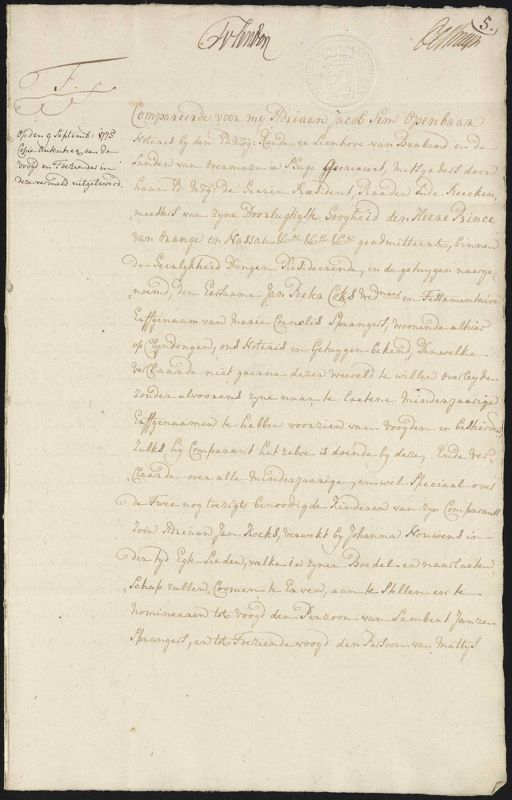 5.
F.
Op den 9 Septemb: 1775
Copie Autentiecq aan de
voogd en Toeziender in
deze vermeld uitgeleverd.
Compareerde voor my Adriaan Jacob Sem Openbaar
Notaris by den Ed: Mog: Raade en Leenhove van Braband en de
Landen van Overmaze in s'Hage Gecreëert, mitsgaders door
haar Ed: Mog: de Heeren President, Raaden & de Reecken
meesters van zyne Doorlugtigste Hoogheid den Heere Prince
van Orange en Nassau &ca &ca &ca geadmitteert, binnen
de Heerlykheid Dongen Resideerende, en de getuygen naarge
noemd, den Eersame Jan Peeter Cocks Wedunaar en Testamentaire
Erffgenaam van Maria Cornelis Sprangers, woonende alhier
op Clyndongen, ons Notaris en Getuygen bekend, Denwelke
verclaarde niet gaerne dezer weereld te willen overleyde
zonder alvoorens zyne naar te laetene Minderjaarige
Erffgenaamen te hebben voorzien van voogden en bestierders
zulks hy Comparant het zelve is doende by deze, Ende ver
claarde over alle Minderjaarige, en wel Speciaal over
de Twee nog toezigt benoodigde Kinderen van zyn Comparants
Zoon Adriaan Jan Kocks, verwekt by Johanna Houwens in
der tyd Egte Lieden, welke in zynen Boedel en naarlaaten
schap zullen Coomen te Erven, aan te Stellen en te
nomineeren tot voogd den Persoon van Lambert Janze
Sprangers, en tot Toeziende voogd den Persoon van Mattys